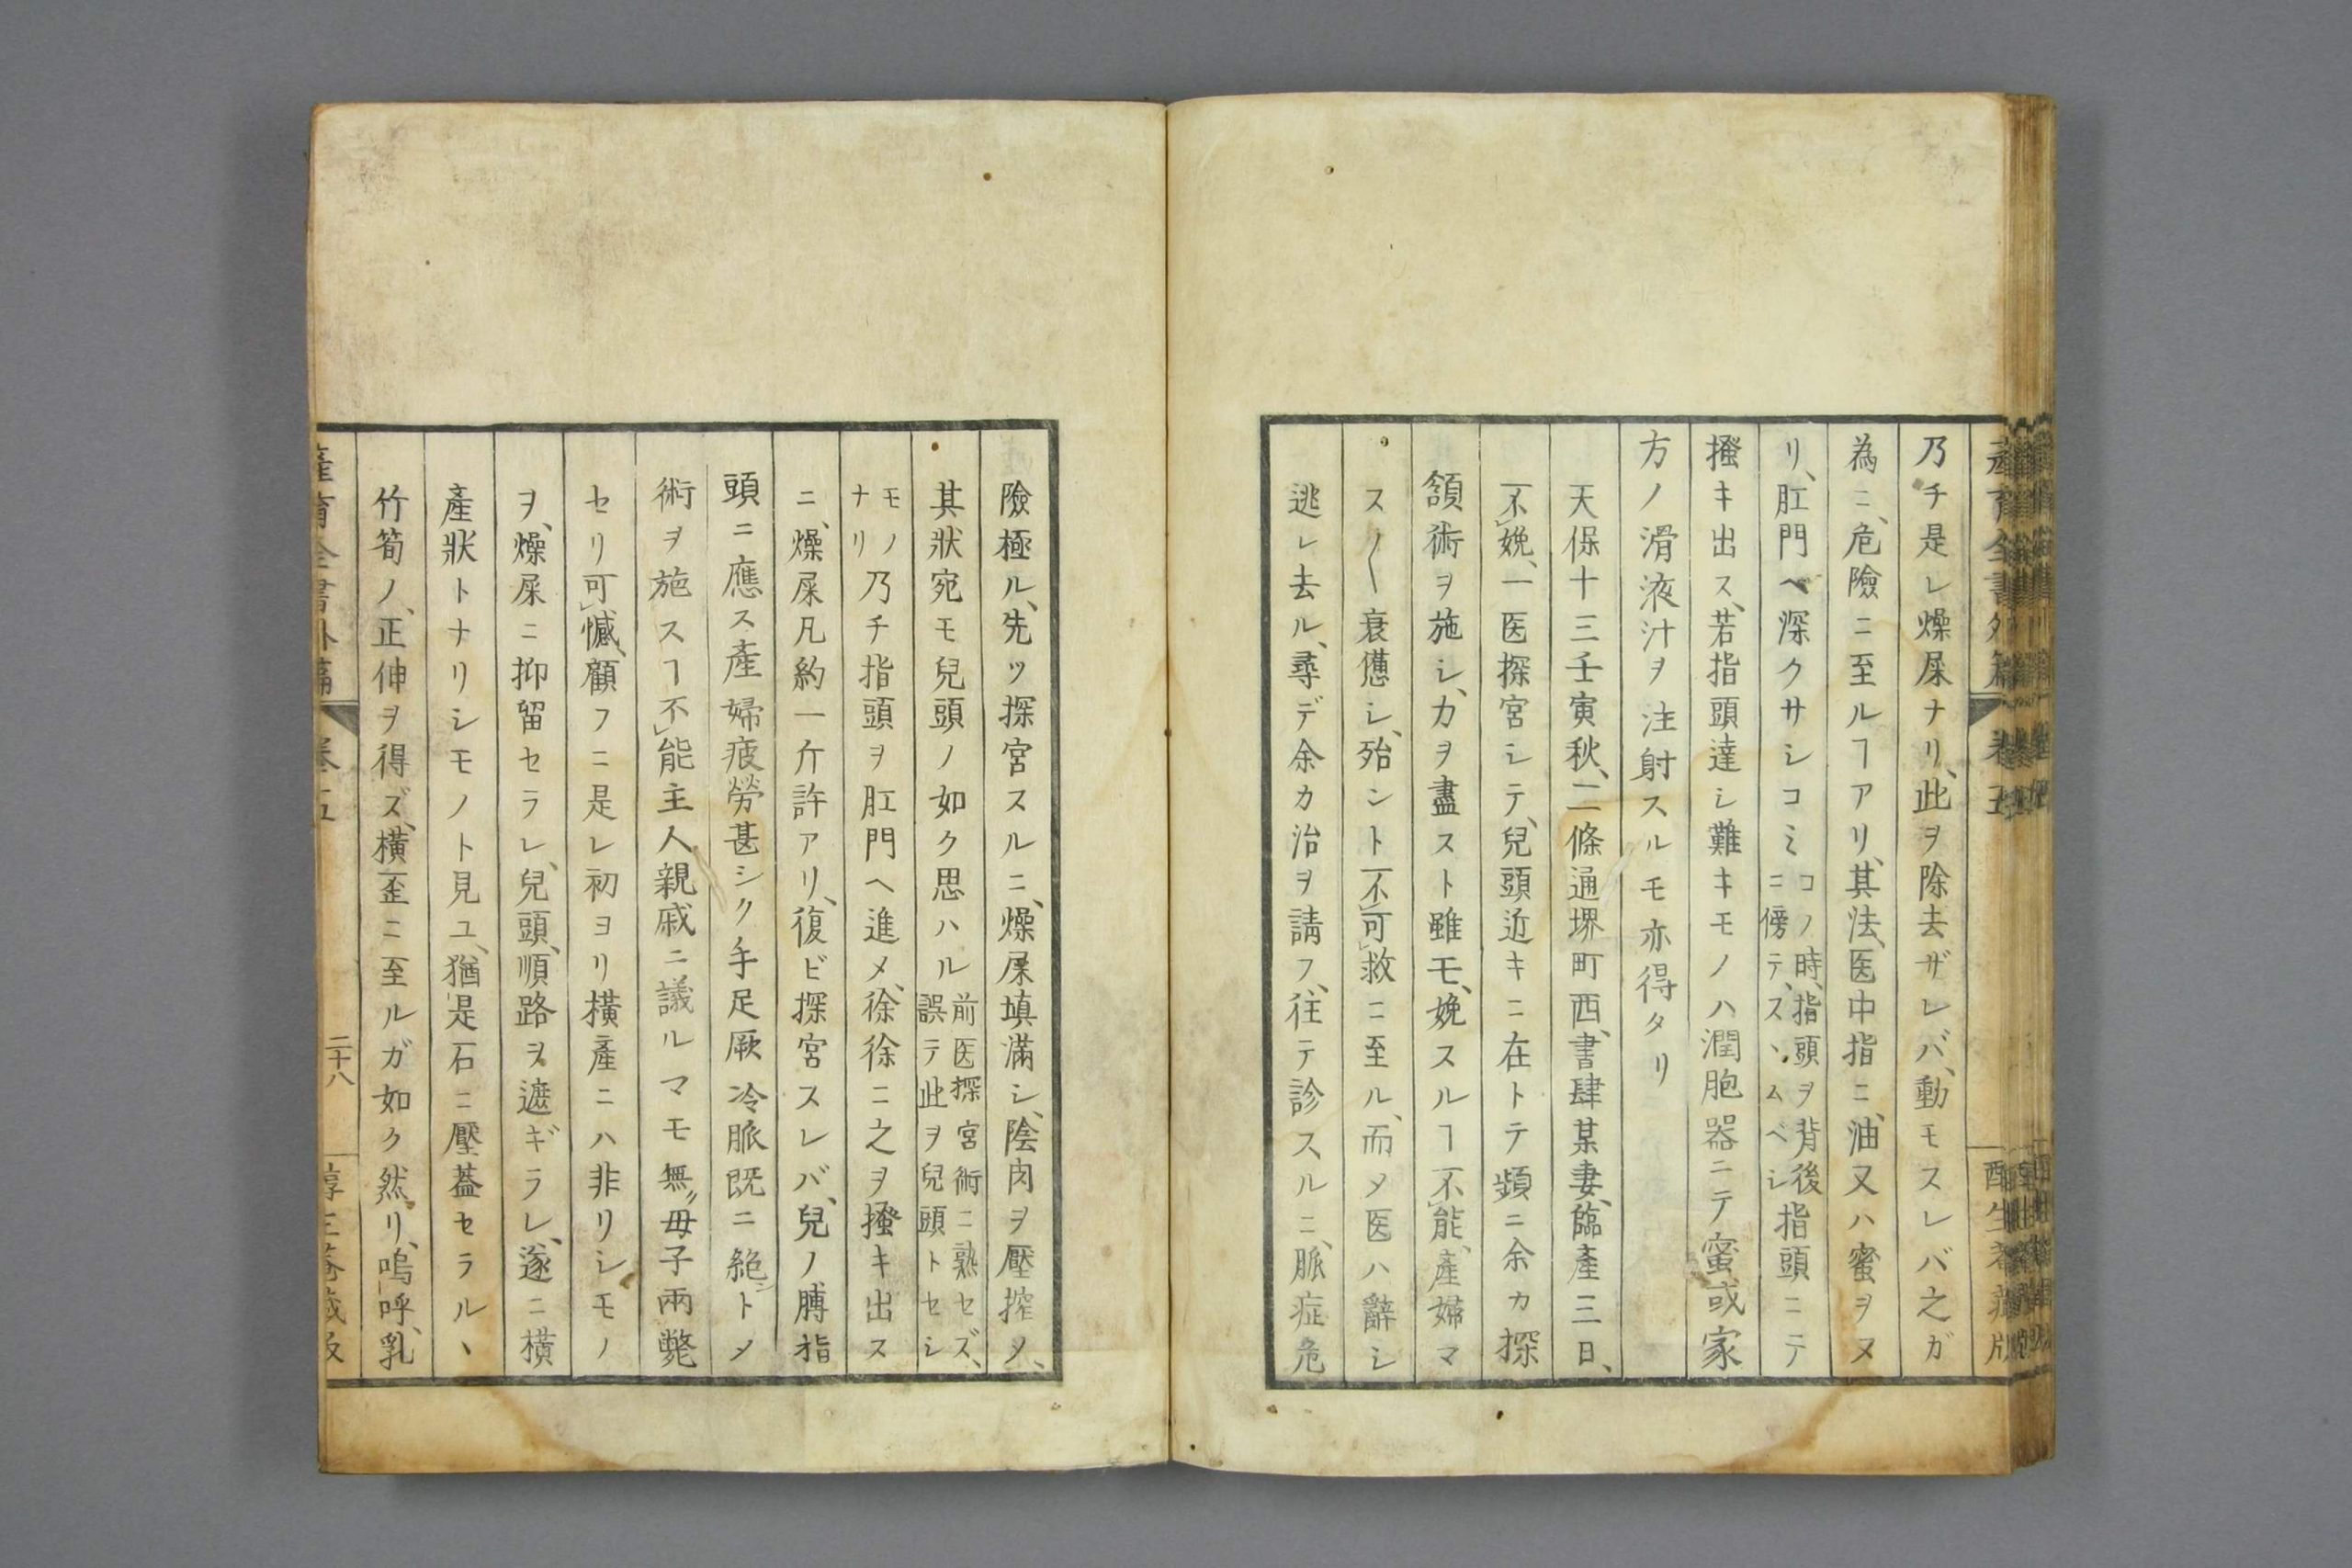 産育全書外篇 卷五
乃チ是レ燥屎ナリ、此ヲ除去ザレバ、動モスレバ之ガ
為ニ、危險ニ至ルヿアリ、其法、医中指ニ、油又ハ蜜ヲヌ
リ、肛門ヘ深クサシコミ コノ時、指頭ヲ背後
ニ傍テ、スヽムベシ 指頭ニテ
搔キ出ス、若指頭達シ難キモノハ潤胞器ニテ蜜或家
方ノ滑液汁ヲ注射スルモ亦得タリ
天保十三壬寅秋、二條通堺町西、書肆某妻、臨產三日、
不娩、一医探宮シテ、兒頭近キニ在トテ頻ニ余カ探
頷術ヲ施シ、力ヲ盡スト雖モ、娩スルヿ不能、產婦マ
ス〳〵衰憊シ、殆ント不可救ニ至ル、而メ医ハ辭シ
逃レ去ル、尋デ余カ治ヲ請フ、往テ診スルニ、脈症危
險極ル、先ツ探宮スルニ、燥屎填滿シ、陰肉ヲ壓搾メ、
其狀宛モ兒頭ノ如ク思ハル 前医探宮術ニ熟セズ、
誤テ此ヲ兒頭トセシ
モノ
ナリ 乃チ指頭ヲ肛門ヘ進メ、徐徐ニ之ヲ搔キ出ス
ニ、燥屎凡約一斤許アリ、復ビ探宮スレバ、兒ノ膊指
頭ニ應ス產婦疲勞甚シク手足厥冷脈既ニ絶トメ
術ヲ施スヿ不能主人親戚ニ議ルマモ無ク母子兩斃
セリ可憾、顧フニ是レ初ヨリ橫產ニハ非リシモノ
ヲ、燥屎ニ抑留セラレ、兒頭、順路ヲ遮ギラレ、遂ニ橫
產狀トナリシモノト見ユ、猶是石ニ壓蓋セラルヽ
竹筍ノ、正伸ヲ得ズ、橫歪ニ至ルガ如ク然リ、嗚呼、乳
產育全書外篇 卷五 二十八